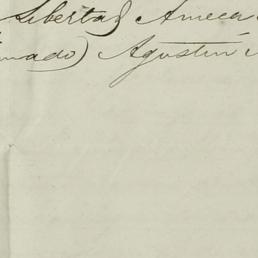 Libertad Ameca
mado) Agustin